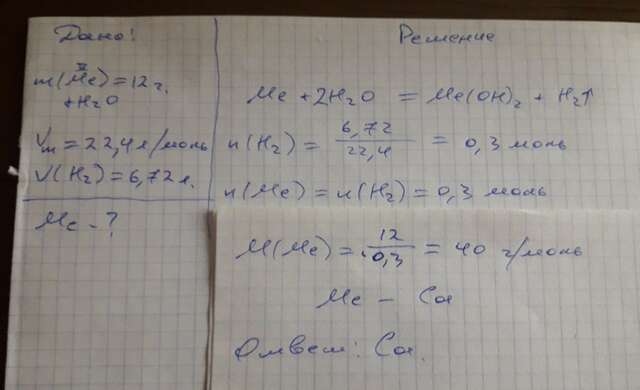 Дано:
m(Me) = 12 г.
II
+H2O
Vm = 22,4 л/моль
V(H2) = 6,72 л.
Me - ?
Решение
Me + 2H2O = Me(OH)2 + H2↑
n(H2) = 6,72 / 22,4 = 0,3 моль
n(Me) = n(H2) = 0,3 моль
M(Me) = 12 / 0,3 = 40 г/моль
Me - Ca
Ответ: Ca.